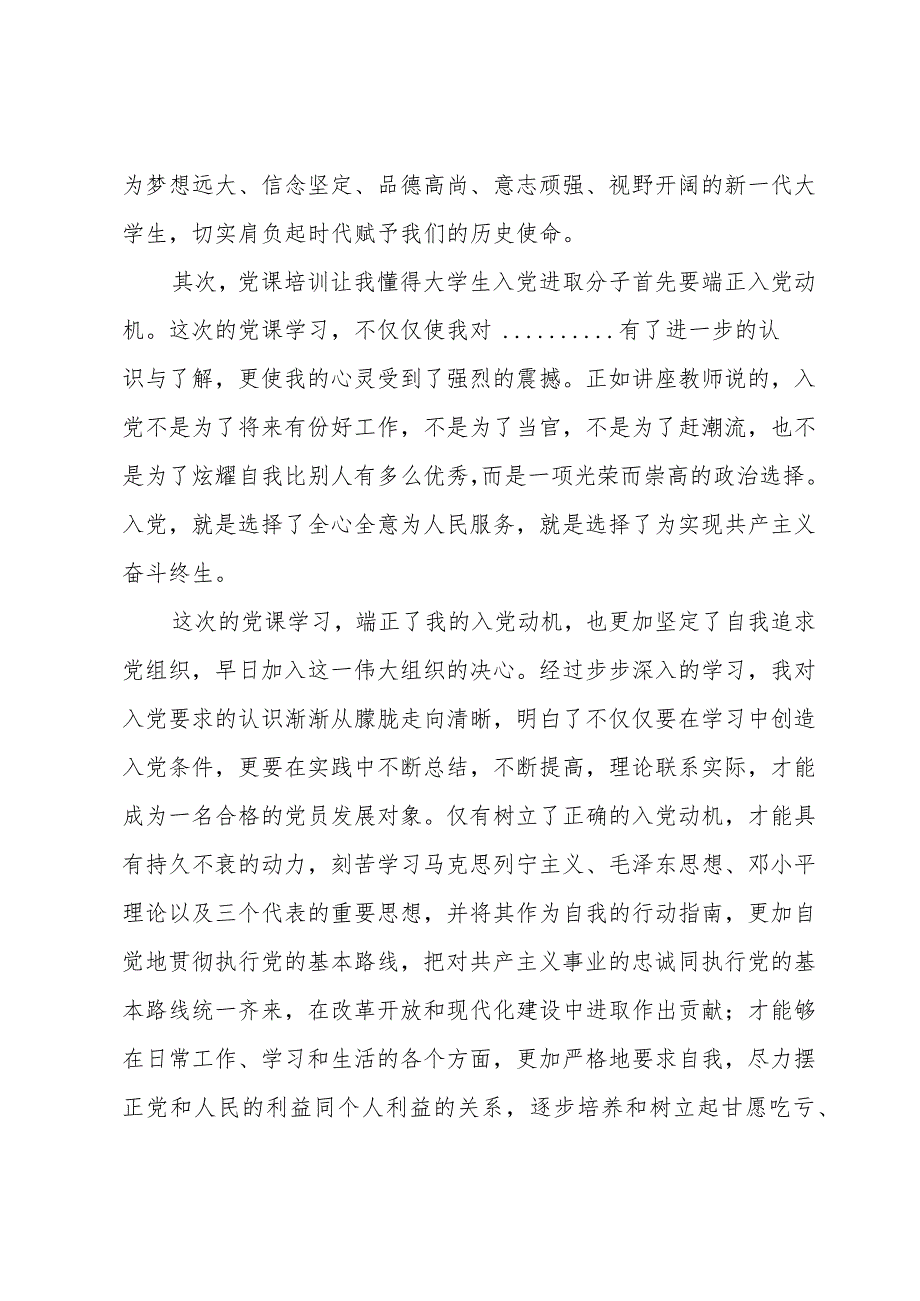 为梦想远大、信念坚定、品德高尚、意志顽强、视野开阔的新一代大
学生，切实肩负起时代赋予我们的历史使命。
其次，党课培训让我懂得大学生入党进取分子首先要端正入党动
机。这次的党课学习，不仅仅使我对 ..........有了进一步的认
识与了解，更使我的心灵受到了强烈的震撼。正如讲座教师说的，入
党不是为了将来有份好工作，不是为了当官，不是为了赶潮流，也不
是为了炫耀自我比别人有多么优秀，而是一项光荣而崇高的政治选择。
入党，就是选择了全心全意为人民服务，就是选择了为实现共产主义
奋斗终生。
这次的党课学习，端正了我的入党动机，也更加坚定了自我追求
党组织，早日加入这一伟大组织的决心。经过步步深入的学习，我对
入党要求的认识渐渐从朦胧走向清晰，明白了不仅仅要在学习中创造
入党条件，更要在实践中不断总结，不断提高，理论联系实际，才能
成为一名合格的党员发展对象。仅有树立了正确的入党动机，才能具
有持久不衰的动力，刻苦学习马克思列宁主义、毛泽东思想、邓小平
理论以及三个代表的重要思想，并将其作为自我的行动指南，更加自
觉地贯彻执行党的基本路线，把对共产主义事业的忠诚同执行党的基
本路线统一齐来，在改革开放和现代化建设中进取作出贡献；才能够
在日常工作、学习和生活的各个方面，更加严格地要求自我，尽力摆
正党和人民的利益同个人利益的关系，逐步培养和树立起甘愿吃亏、